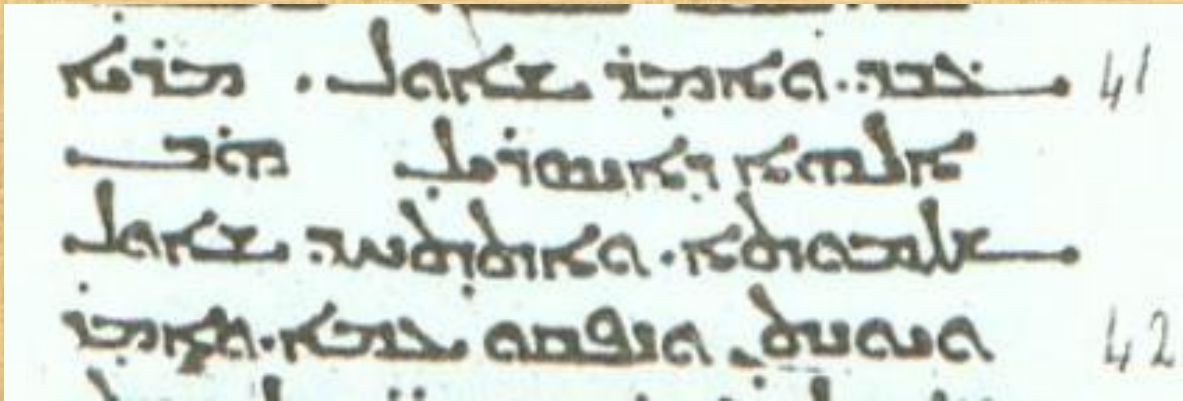 ܥܒܕ. ܘܐܡܪ ܫܐܘܠ. ܡܪܝܐ 41
ܐܠܗܐ ܕܐܝܣܪܝܠ ܗܒ
ܫܠܡܘܬܐ. ܘܐܬܬܚܕ. ܫܐܘܠ
ܘܝܘܢܬܢ. ܘܢܦܩܘ ܥܡܐ. ܘܐܡܪ 42